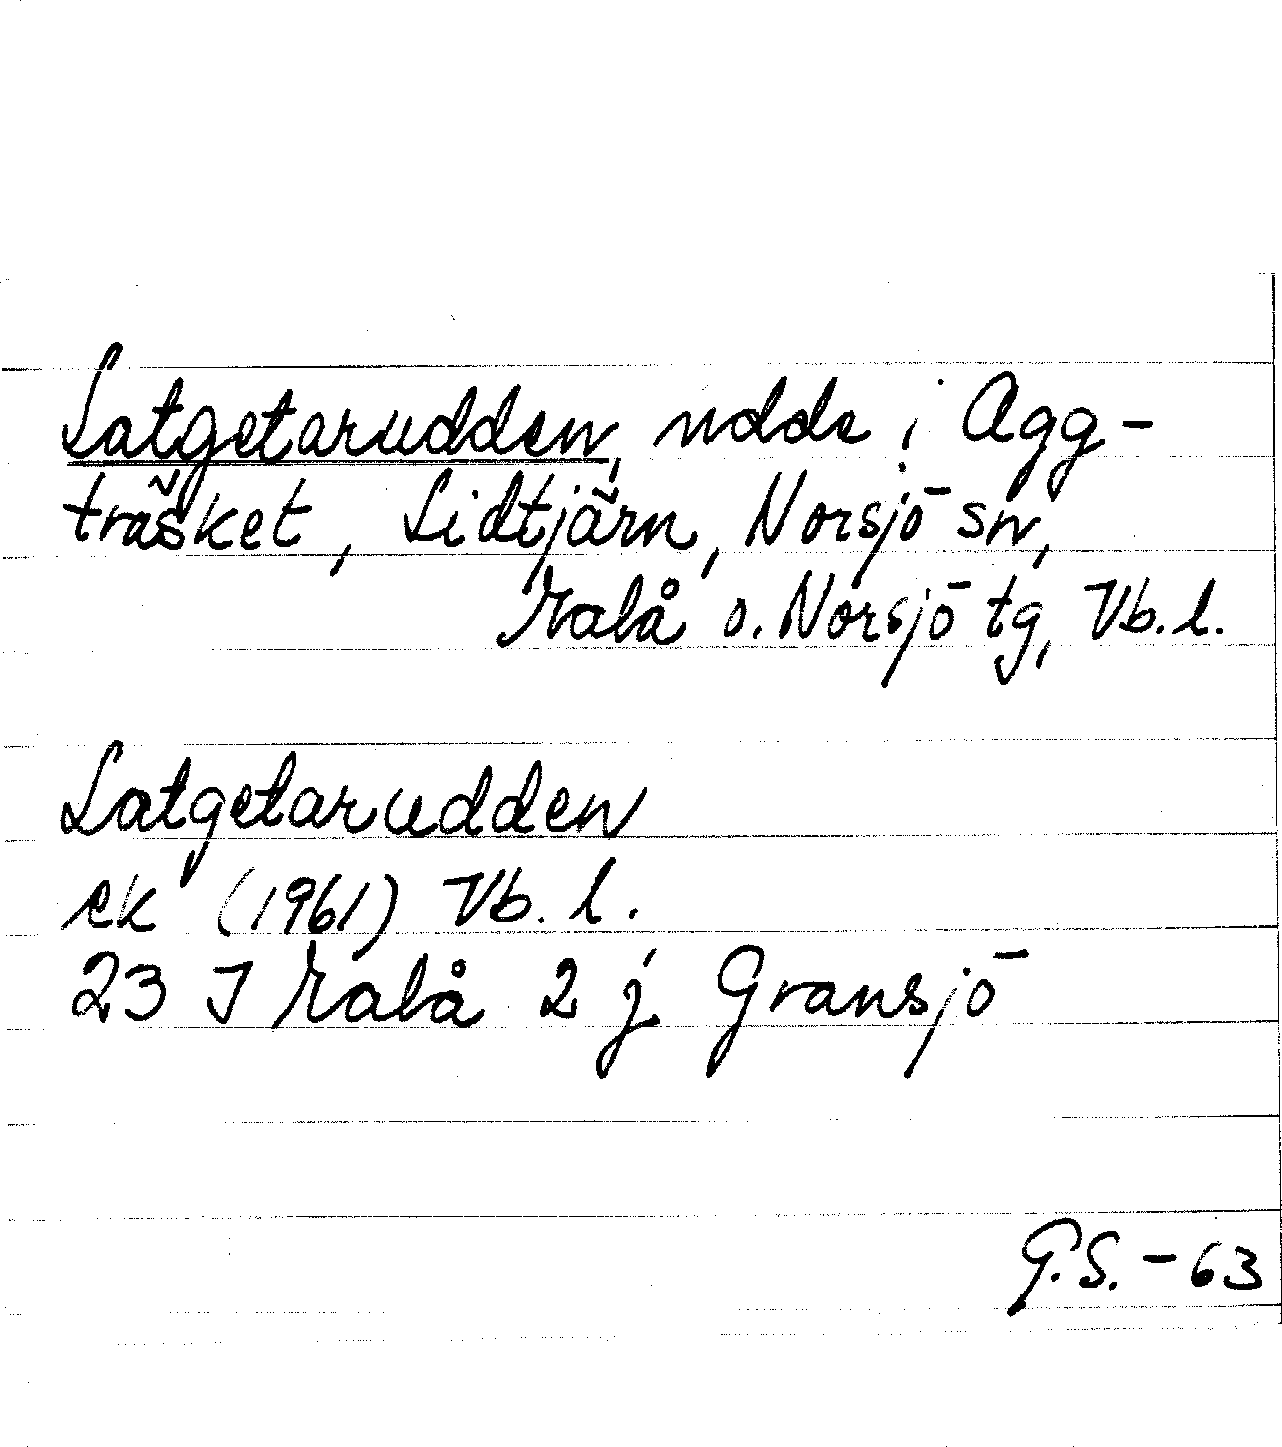 Latgetarudden, udde i Agg-
träsket, Lidtjärn, Norsjö sn,
Malå o. Norsjö tg, Vb. l.
Latgetarudden
ek (1961) Vb. l.
23 J Malå 2 j Gransjö
G.S. - 63